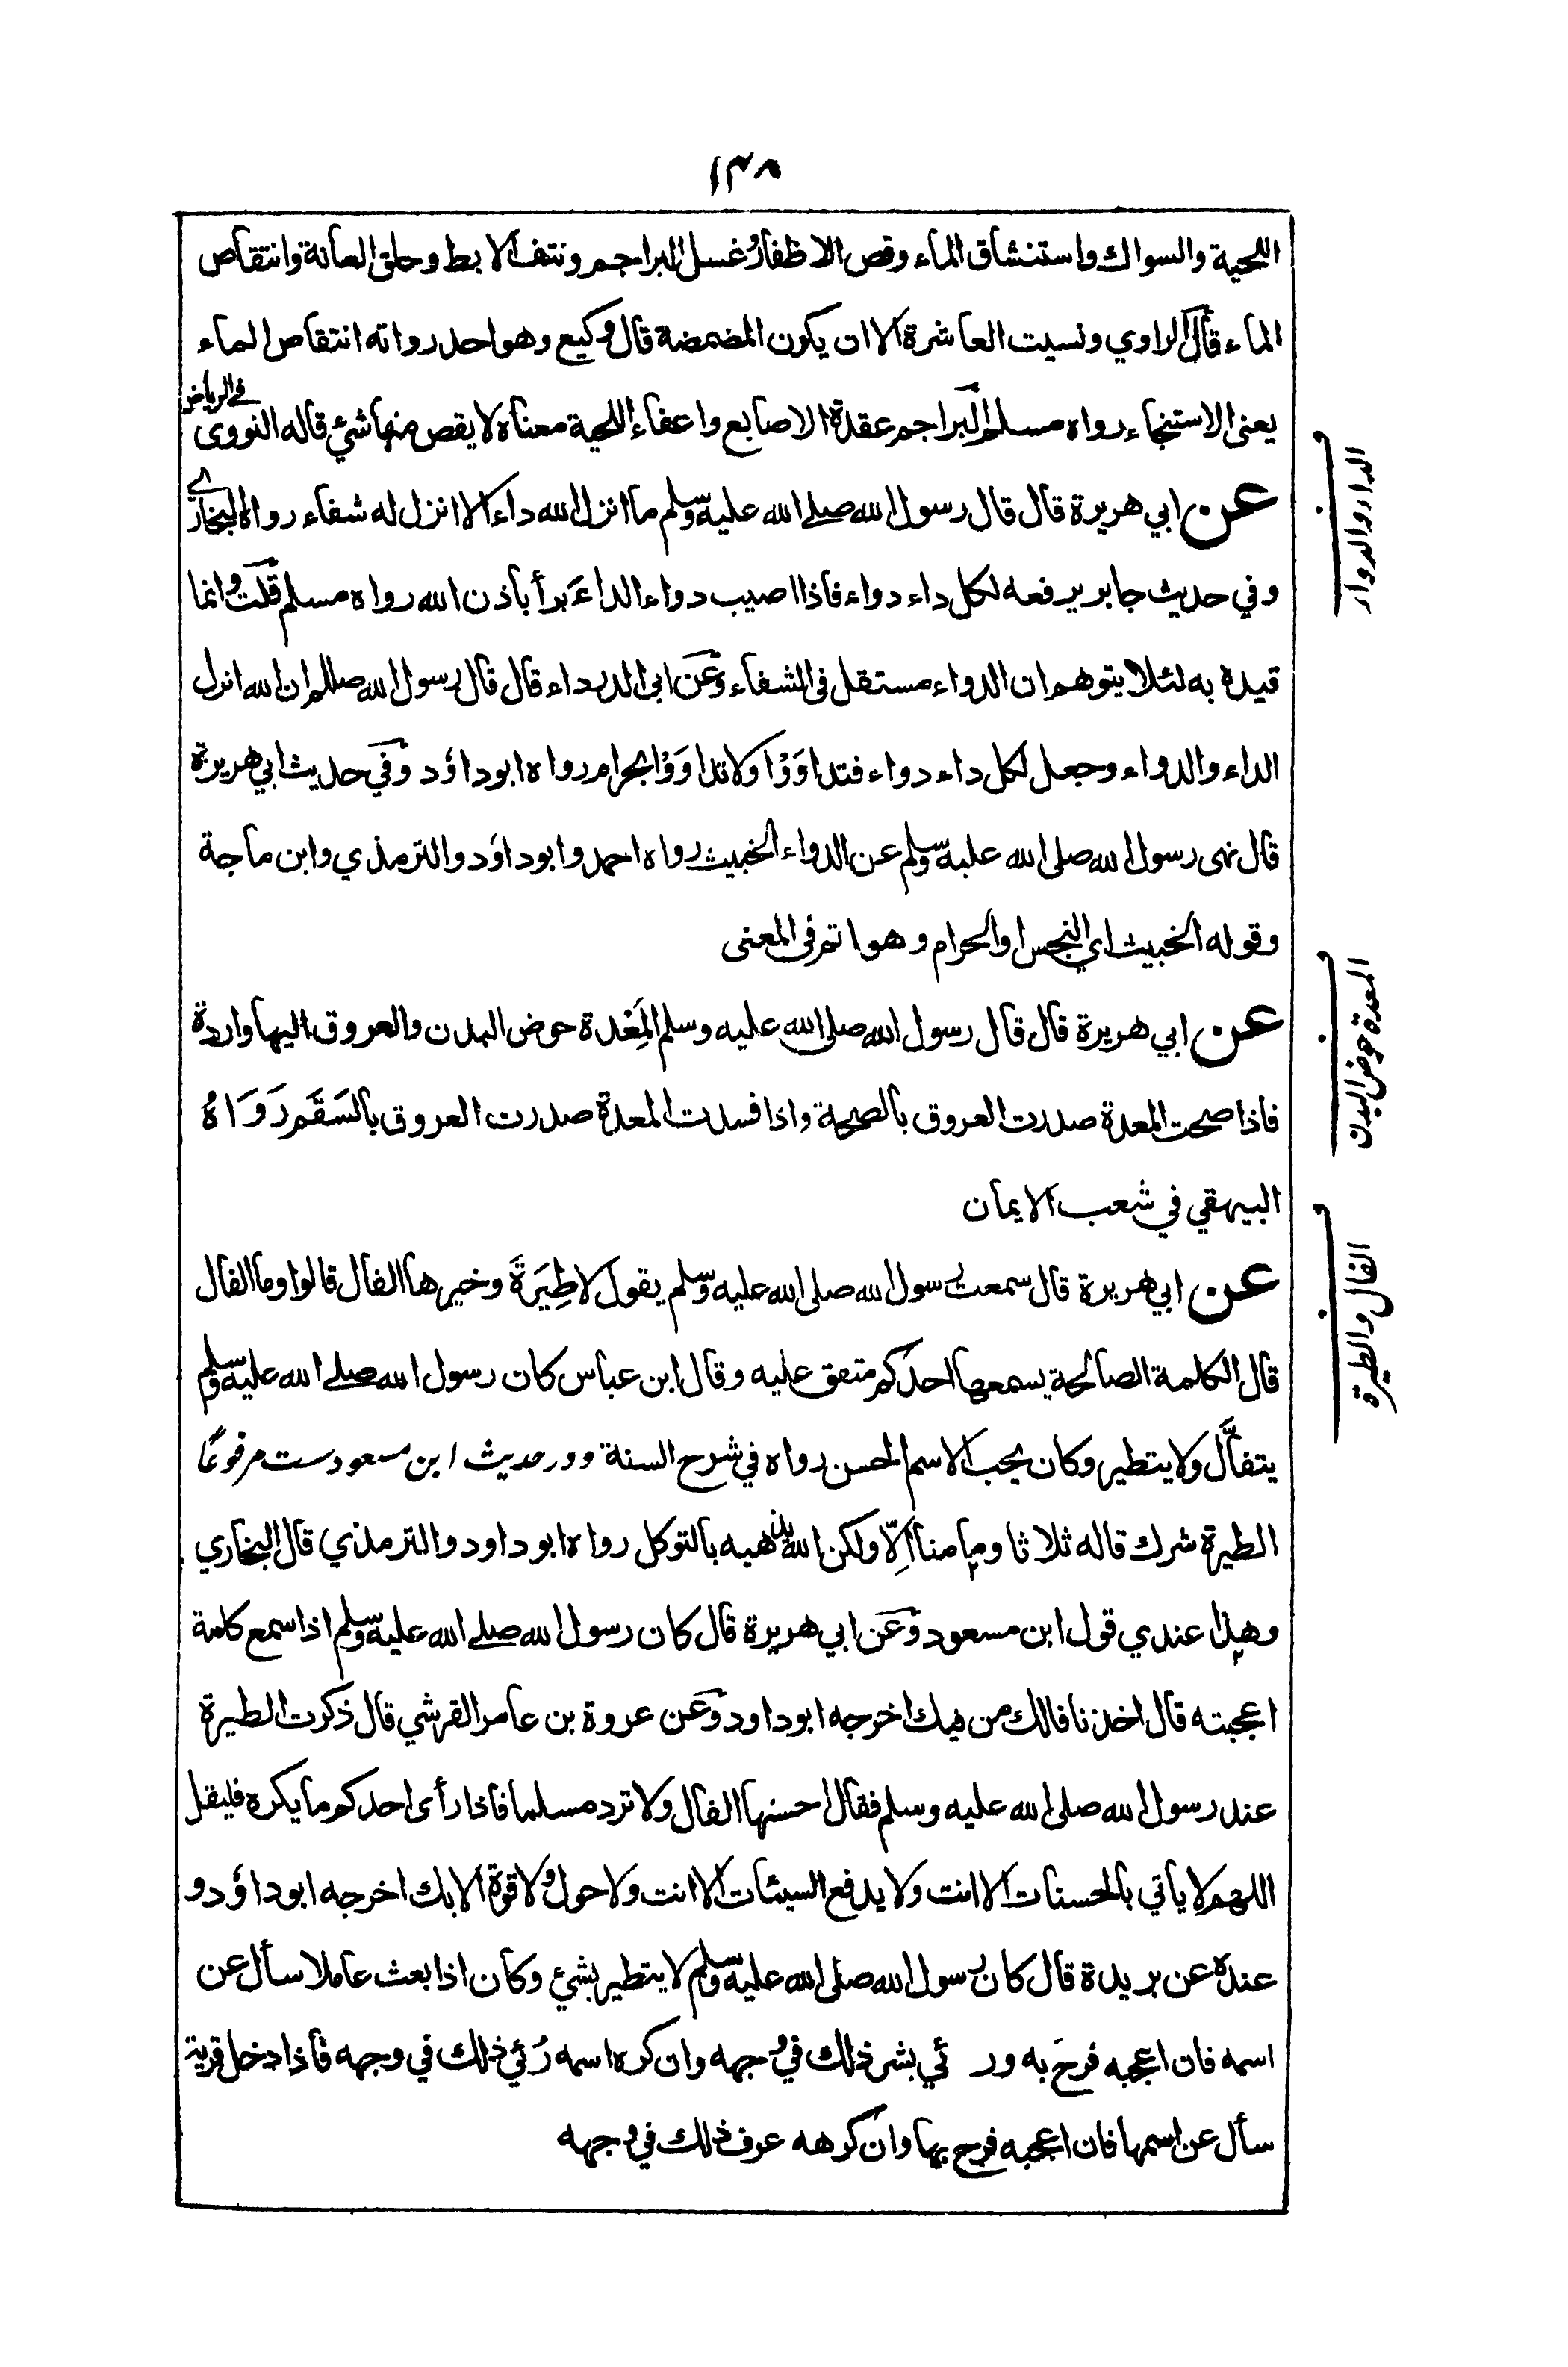 ١٣٨
اللحية والسواك واستنشاق الماء وقص الاظفار وغسل البراجم ونتف الابط وحلق العانة وانتقاص
الماء قال الراوي ونسيت العاشرة الا ان يكون المضمضة قال وكيع وهو احد رواته انتقاص الماء
يعنى الاستنجاء رواه مسلم البراجم عقدة الاصابع واعفاء اللحية معناه لا يقص منها شئ قاله النووى فى الرياض
عن ابي هريرة قال قال رسول الله صلى الله عليه وسلم ما انزل الله داء الا انزل له شفاء رواه البخاري
وفي حديث جابر يرفعه لكل داء دواء فاذا اصيب دواء الداء برأ باذن الله رواه مسلم قلت وانما
قيده به لئلا يتوهم ان الدواء مستقل فى الشفاء وعن ابى الدرداء قال قال رسول الله صللم ان الله انزل
الداء والدواء وجعل لكل داء دواء فتداوَوْا ولا تداوَوْا بحرام رواه ابو داؤد وفي حديث ابي هريرة
قال نهى رسول الله صلى الله عليه وسلم عن الدواء الخبيث رواه احمد وابو داؤد والترمذي وابن ماجة
وقوله الخبيث اي النجس او الحرام وهو اتم فى المعنى
عن ابي هريرة قال قال رسول الله صلى الله عليه وسلم المِعْدة حوض البدن والعروق اليها واردة
فاذا صحت المعدة صدرت العروق بالصحة واذا فسدت المعدة صدرت العروق بالسَقَم رَوَاهُ
البيهقي في شعب الايمان
عن ابي هريرة قال سمعت رسول الله صلى الله عليه وسلم يقول لا طِيَرَةَ وخيرها الفال قالوا وما الفال
قال الكلمة الصالحة يسمعها احدكم متفق عليه وقال ابن عباس كان رسول الله صلى الله عليه وسلم
يتفأَّل ولا يتطير وكان يحب الاسم الحسن رواه في شرح السنة ودر حديث ابن مسعود ست مرفوعًا
الطيرة شرك قاله ثلاثا وما منا اِلّا ولكن الله يذهبه بالتوكل رواه ابو داود والترمذي قال البخاري
وهذا عندي قول ابن مسعود وعن ابي هريرة قال كان رسول الله صلى الله عليه وسلم اذا سمع كلمة
اعجبته قال اخذنا فالك من فيك اخرجه ابو داود وعن عروة بن عامر القرشي قال ذكرت الطيرة
عند رسول الله صلى الله عليه وسلم فقال احسنها الفال ولا ترد مسلما فاذا رأى احدكم ما يكره فليقل
اللهم لا يأتي بالحسنات الا انت ولا يدفع السيئات الا انت ولا حول ولا قوة الا بك اخرجه ابو داؤد و
عنده عن بريدة قال كان رسول الله صلى الله عليه وسلم لا يتطير بشئ وكان اذا بعث عاملا سأل عن
اسمه فان اعجبه فرح به ور ئي بشر ذلك في وجهه وان كره اسمه رُئي ذلك في وجهه فاذا دخل قرية
سأل عن اسمها فان اعجبه فرح بها وان كرهه عرف ذلك في وجهه
الداء والدواء
المعدة حوض البدن
الفال والطيرة